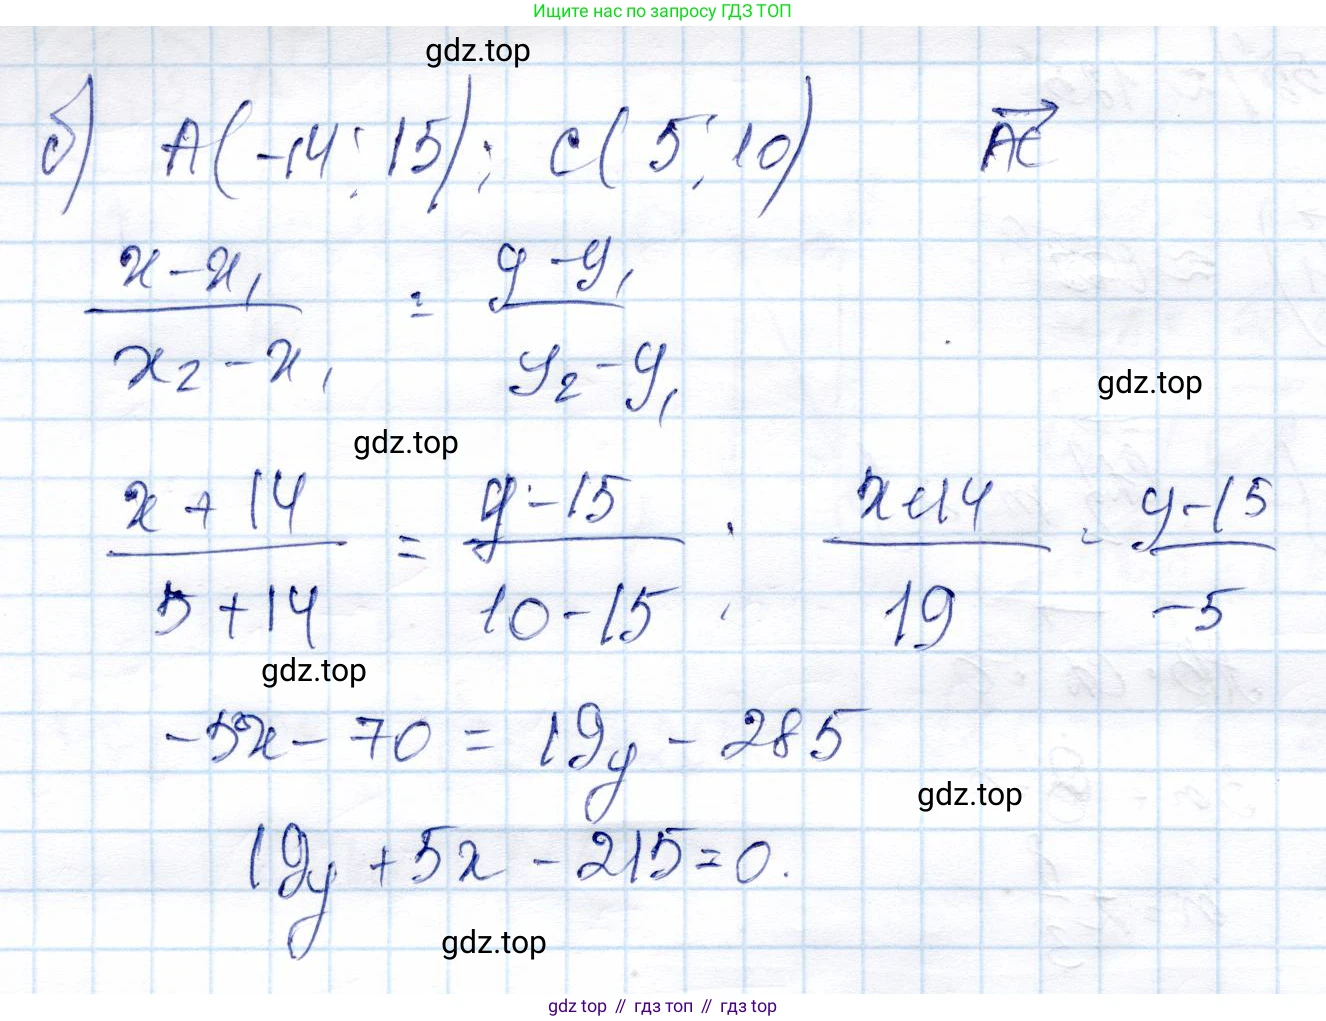 Ищите нас по запросу ГДЗ ТОП
gdz.top
б) A(-14; 15); C(5; 10) AC
x-x₁ / x₂-x₁ = y-y₁ / y₂-y₁
gdz.top
gdz.top
x+14 / 5+14 = y-15 / 10-15 ; x+14 / 19 = y-15 / -5
gdz.top
-5x-70 = 19y-285
gdz.top
19y+5x-215=0.
gdz.top
gdz top // гдз топ // гдз top